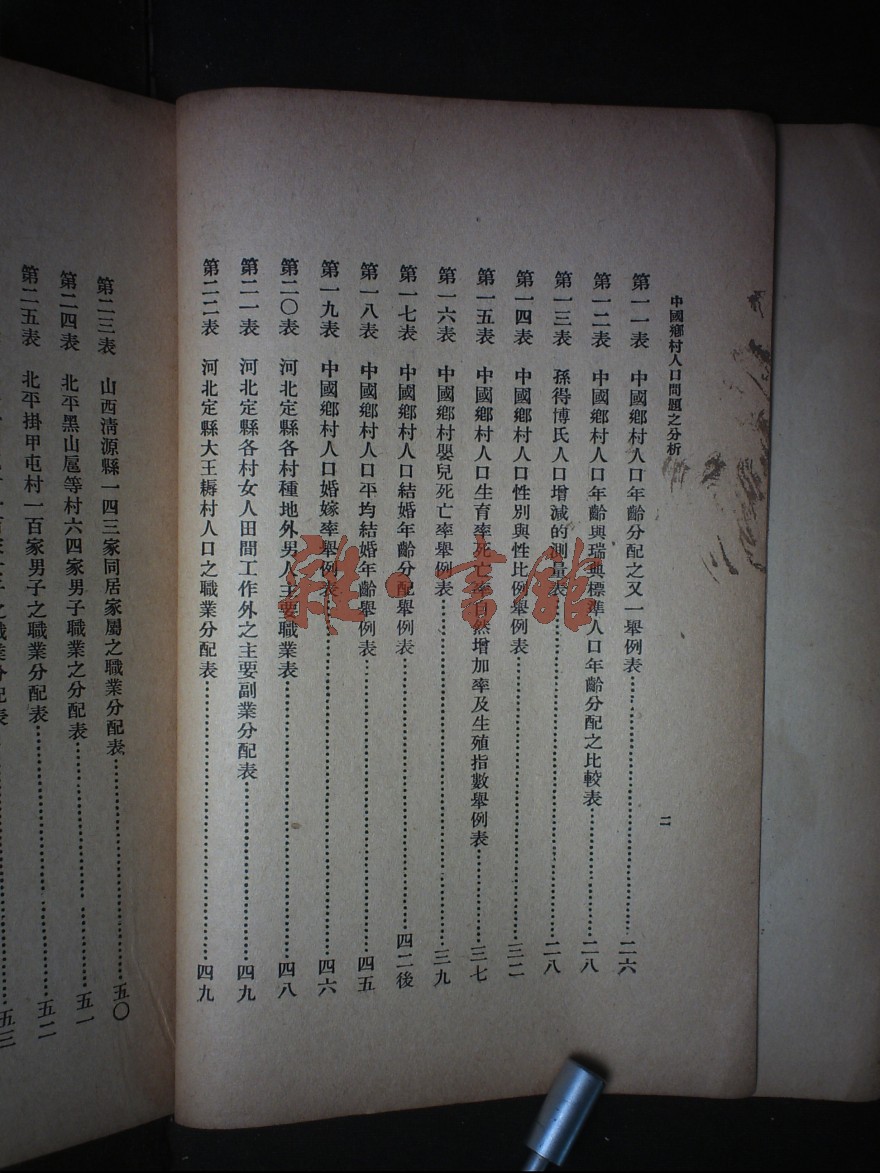 中國鄉村人口問題之分析
二
第一一表 中國鄉村人口年齡分配之又一舉例表……二六
第一二表 中國鄉村人口年齡與瑞典標準人口年齡分配之比較表……二八
第一三表 孫得博氏人口增減的測量表……二八
第一四表 中國鄉村人口性別與性比例舉例表……三二
第一五表 中國鄉村人口生育率死亡率自然增加率及生殖指數舉例表……三七
第一六表 中國鄉村嬰兒死亡率舉例表……三九
第一七表 中國鄉村人口結婚年齡分配舉例表……四二後
第一八表 中國鄉村人口平均結婚年齡舉例表……四五
第一九表 中國鄉村人口婚嫁率舉例表……四六
第二〇表 河北定縣各村種地外男人主要職業表……四八
第二一表 河北定縣各村女人田間工作外之主要副業分配表……四九
第二二表 河北定縣大王耨村人口之職業分配表……四九
第二三表 山西清源縣一四三家同居家屬之職業分配表……五〇
第二四表 北平黑山扈等村六四家男子職業之分配表……五一
第二五表 北平掛甲屯村一百家男子之職業分配表……五二
五三
雜·書館